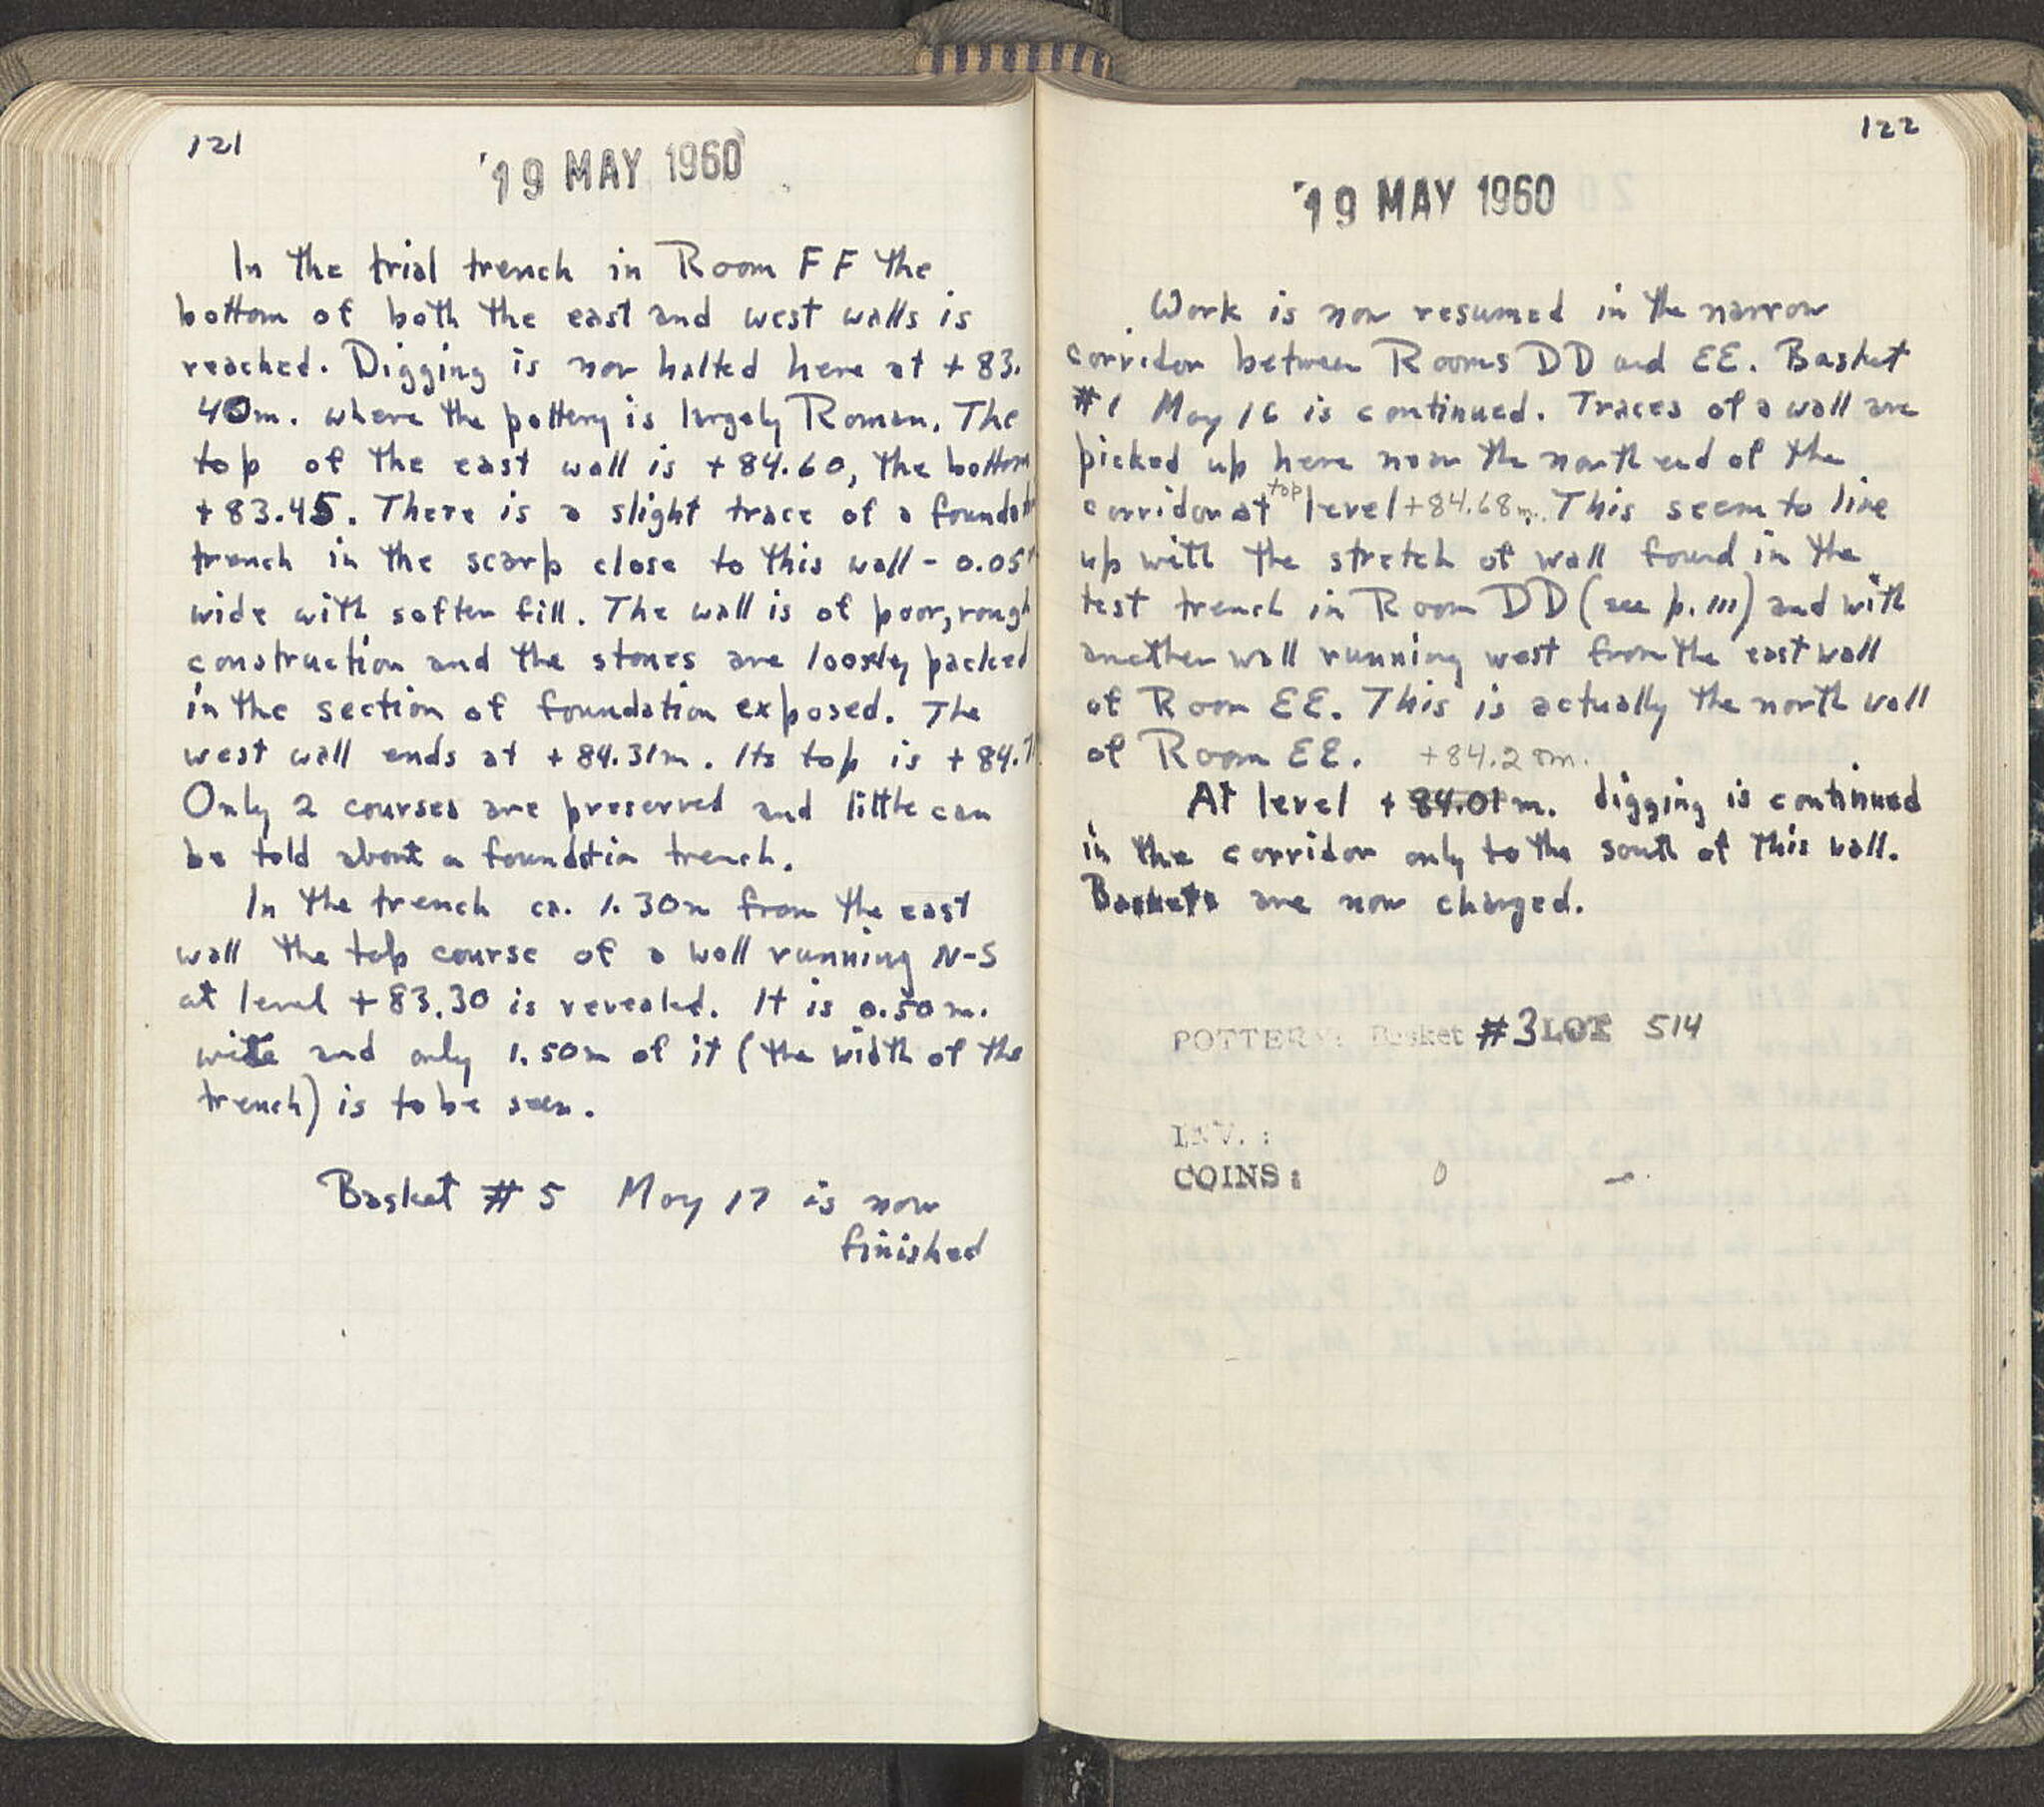 121
19 MAY 1960
In the trial trench in Room FF the
bottom of both the east and west walls is
reached. Digging is now halted here at + 83.
40m. where the pottery is largely Roman. The
top of the east wall is +84.60, the bottom
+83.45. There is a slight trace of a foundat
trench in the scarp close to this wall - 0.05
wide with softer fill. The wall is of poor, rough
construction and the stones are loosely packed
in the section of foundation exposed. The
west wall ends at +84.31m. Its top is +84.7
Only 2 courses are preserved and little can
be told about a foundation trench.
In the trench ca. 1.30m from the east
wall the top course of a wall running N-S
at level +83.30 is revealed. It is 0.50m.
wide and only 1.50m of it (the width of the
trench) is to be seen.
Basket #5 May 17 is now
finished
122
19 MAY 1960
Work is now resumed in the narrow
corridor between Rooms DD and EE. Basket
#1 May 16 is continued. Traces of a wall are
picked up here near the north end of the
corridor at top level +84.68m. This seem to line
up with the stretch of wall found in the
test trench in Room DD (see p. 111) and with
another wall running west from the east wall
of Room EE. This is actually the north wall
of Room EE. +84.28m.
At level + 84.01m. digging is continued
in the corridor only to the south of this wall.
Baskets are now changed.
POTTERY: Basket #3 LOT 514
INV.:
COINS: 0 -